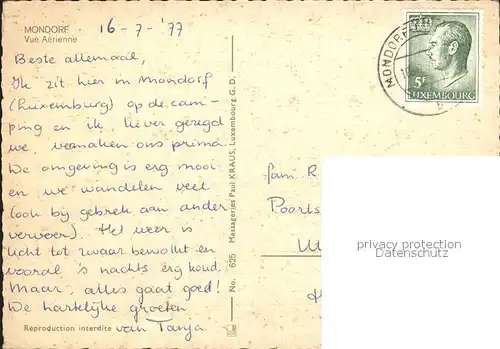 MONDORF
Vue Aérienne
16-7-'77
Beste allemaal,
Ik zit hier in Mondorf
(Luxemburg) op de cam-
ping en ik, liever gezegd
we, vermaken ons prima.
De omgeving is erg mooi
en we wandelen veel
(ook bij gebrek aan ander
vervoer). Het weer is
licht tot zwaar bewolkt en
vooral 's nachts erg koud.
Maar, alles gaat goed!
De hartelijke groeten
van Tanja
Reproduction interdite
No. 625 Messageries Paul KRAUS, Luxembourg G. D.
MONDORF
5F
LUXEMBOURG
fam. R
Poorts
Ut
privacy protection
Datenschutz